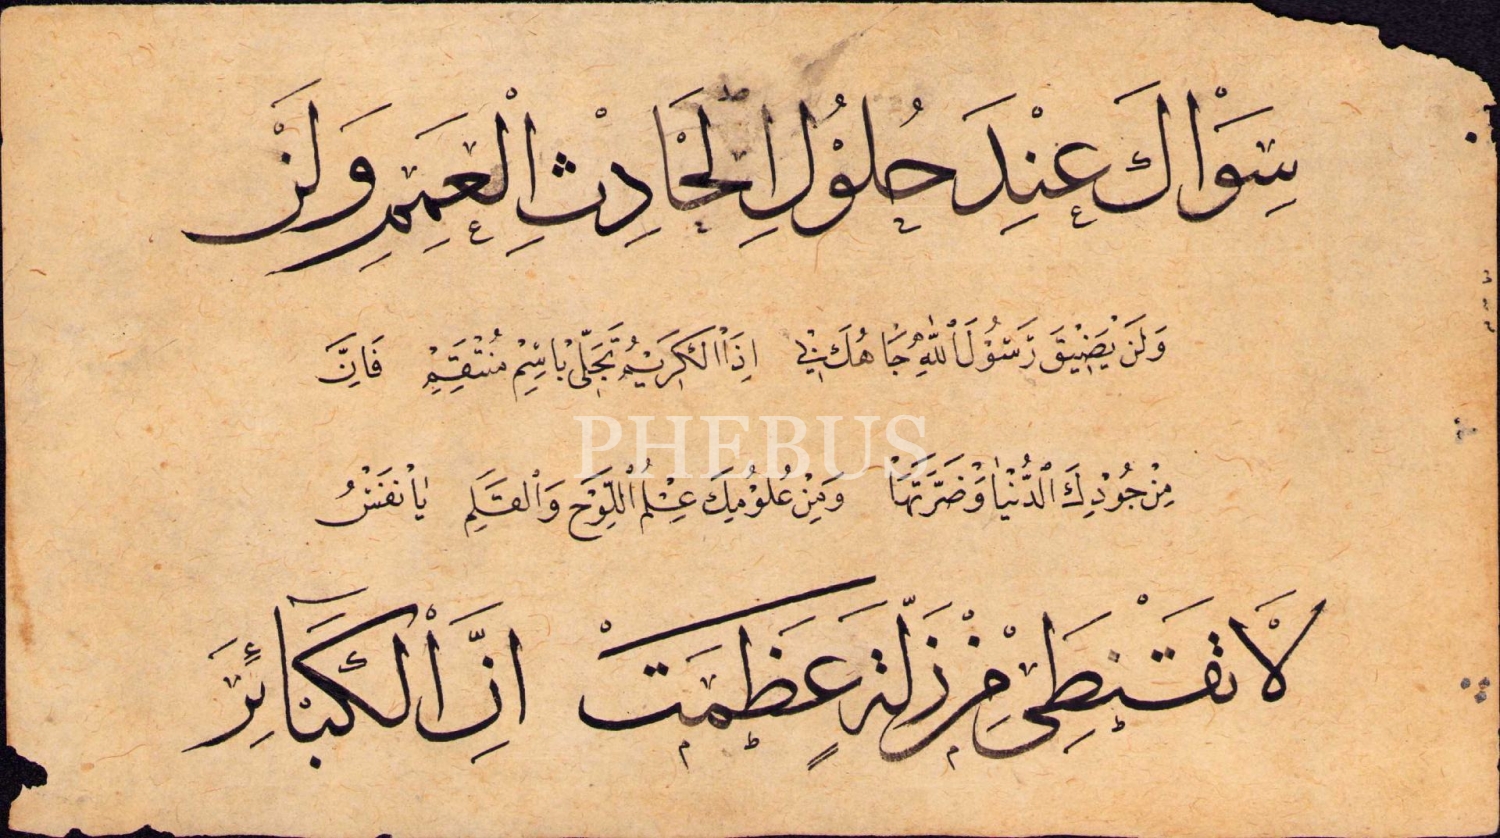 سِوَاكَ عِنْدَ حُلُولِ الْحَادِثِ الْعَمِمِ وَلَنْ
وَلَنْ يَضِيقَ رَسُولَ اللّٰهِ جَاهُكَ بِي اِذَا الْكَرِيمُ تَجَلّٰى بِاسْمِ مُنْتَقِمِ فَاِنَّ
PHEBUS
مِنْ جُودِكَ الدُّنْيَا وَضَرَّتَهَا وَمِنْ عُلُومِكَ عِلْمُ اللَّوْحِ وَالْقَلَمِ يَا نَفْسُ
لَا تَقْنَطِى مِنْ زَلَّةٍ عَظُمَتْ اِنَّ الْكَبَائِرَ